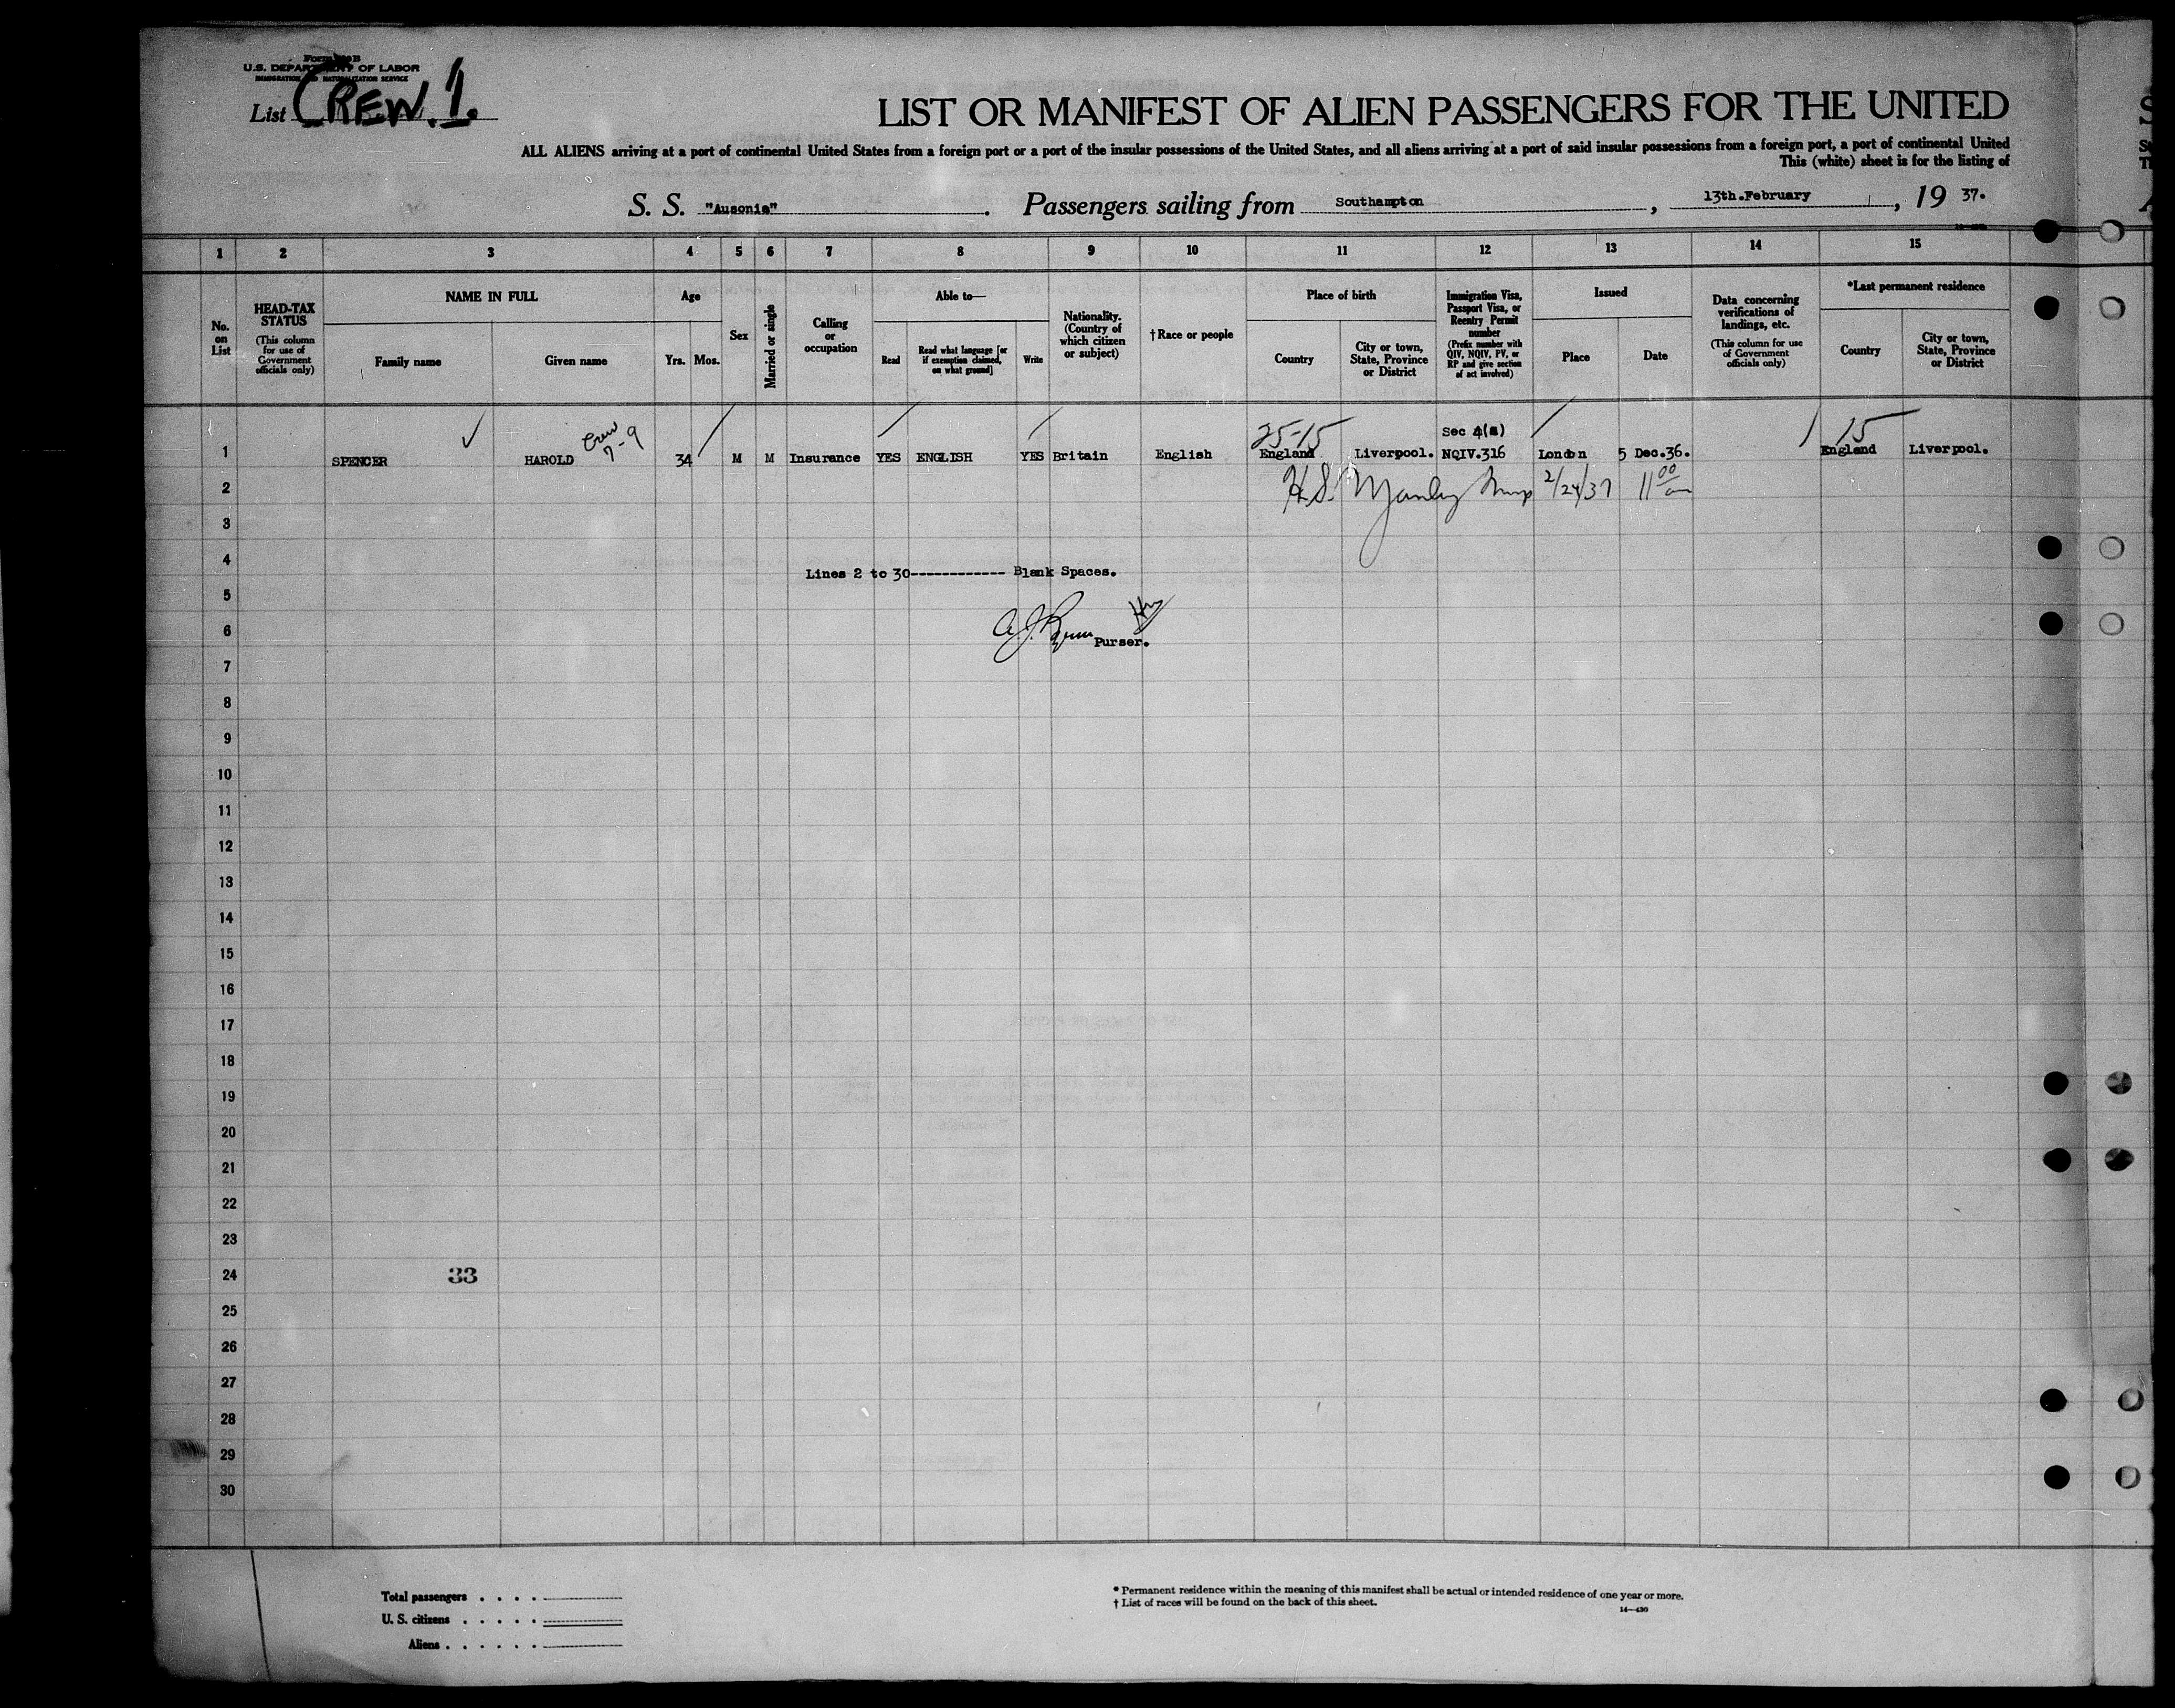 U.S. DEPARTMENT OF LABOR
IMMIGRATION AND NATURALIZATION SERVICE
List CREW. 1.
LIST OR MANIFEST OF ALIEN PASSENGERS FOR THE UNITED
ALL ALIENS arriving at a port of continental United States from a foreign port or a port of the insular possessions of the United States, and all aliens arriving at a port of said insular possessions from a foreign port, a port of continental United
This (white) sheet is for the listing of
S. S. "Ausonia". Passengers sailing from Southampton, 13th.February, 19 37.
1 2 3 4 5 6 7 8 9 10 11 12 13 14 15
No. on List
HEAD-TAX STATUS
(This column for use of Government officials only)
NAME IN FULL
Family name
Given name
Age
Yrs. Mos.
Sex
Married or single
Calling or occupation
Able to—
Read
Read what language [or if exemption claimed, on what ground]
Write
Nationality. (Country of which citizen or subject)
†Race or people
Place of birth
Country
City or town, State, Province or District
Immigration Visa, Passport Visa, or Reentry Permit number
(Prefix number with QIV, NQIV, PV, or RP and give section of act involved)
Issued
Place
Date
Data concerning verifications of landings, etc.
(This column for use of Government officials only)
*Last permanent residence
Country
City or town, State, Province or District
Crew 7-9
25-15
Sec 4(a)
15
1 SPENCER HAROLD 34 M M Insurance YES ENGLISH YES Britain English England Liverpool. NQIV.316 London 5 Dec.36. England Liverpool.
2 H.S. Manley 2/24/37 11 00 am
3
4
Lines 2 to 30------------ Blank Spaces.
5
6
Purser.
7
8
9
10
11
12
13
14
15
16
17
18
19
20
21
22
23
24 33
25
26
27
28
29
30
Total passengers . . . .
U. S. citizens . . . . .
Aliens . . . . . .
* Permanent residence within the meaning of this manifest shall be actual or intended residence of one year or more.
† List of races will be found on the back of this sheet.
14—430